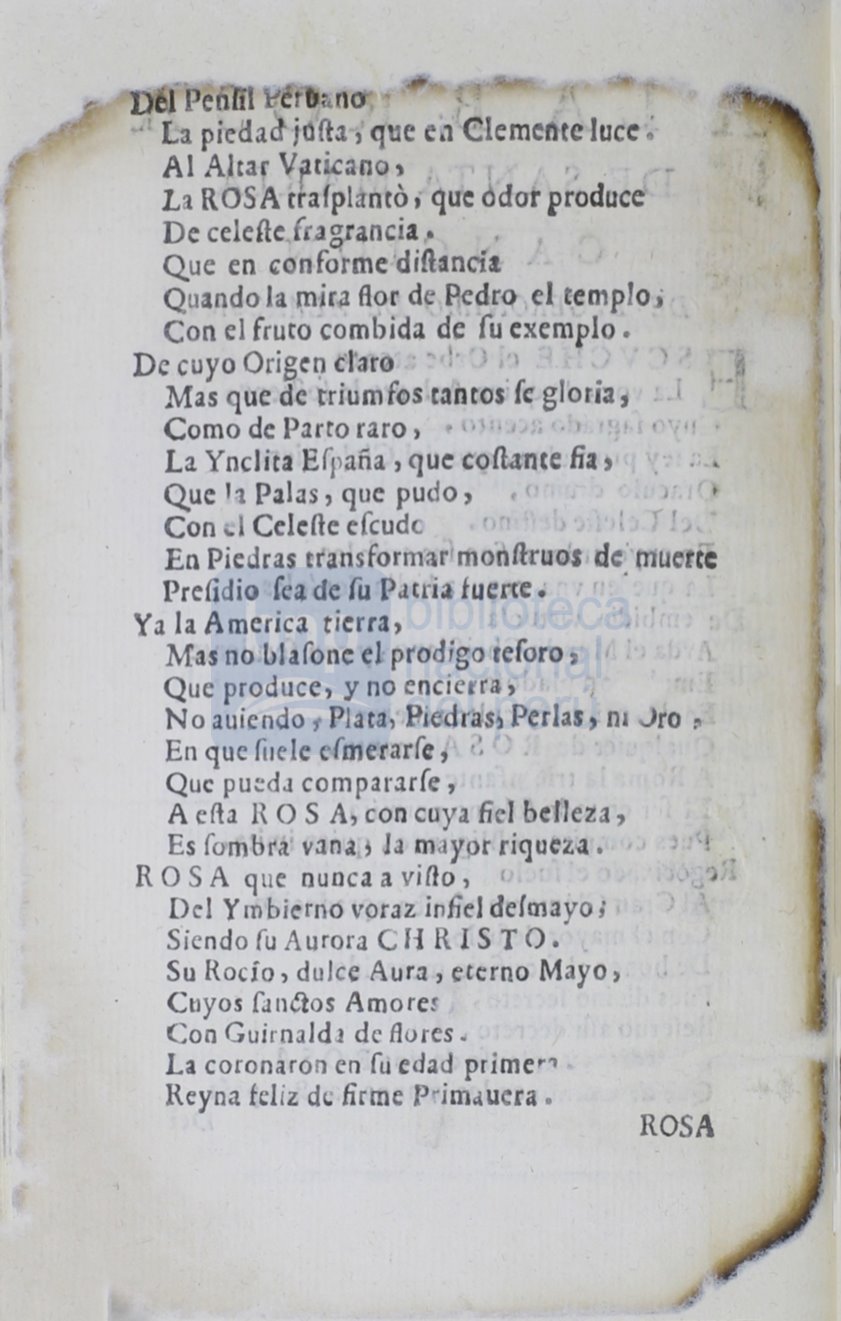 Del Penſil Peruano
La piedad juſta, que en Clemente luce.
Al Altar Vaticano,
La ROSA traſplantò, que odor produce
De celeſte fragrancia.
Que en conforme diſtancia
Quando la mira flor de Pedro el templo,
Con el fruto combida de ſu exemplo.
De cuyo Origen claro
Mas que de triumfos tantos ſe gloria,
Como de Parto raro,
La Ynclita Eſpaña, que coſtante fia,
Que la Palas, que pudo,
Con el Celeſte eſcudo
En Piedras transformar monſtruos de muerte
Preſidio ſea de ſu Patria fuerte.
Ya la America tierra,
Mas no blaſone el prodigo teſoro,
Que produce, y no encierra,
No auiendo, Plata, Piedras, Perlas, ni Oro,
En que ſuele eſmerarſe,
Que pueda compararſe,
A eſta R O S A, con cuya fiel belleza,
Es ſombra vana, la mayor riqueza.
R O S A que nunca a viſto,
Del Ymbierno voraz infiel deſmayo;
Siendo ſu Aurora C H R I S T O.
Su Rocío, dulce Aura, eterno Mayo,
Cuyos ſanctos Amores
Con Guirnalda de flores.
La coronaron en ſu edad primera.
Reyna feliz de firme Primauera.
ROSA
biblioteca
nacional
del perú